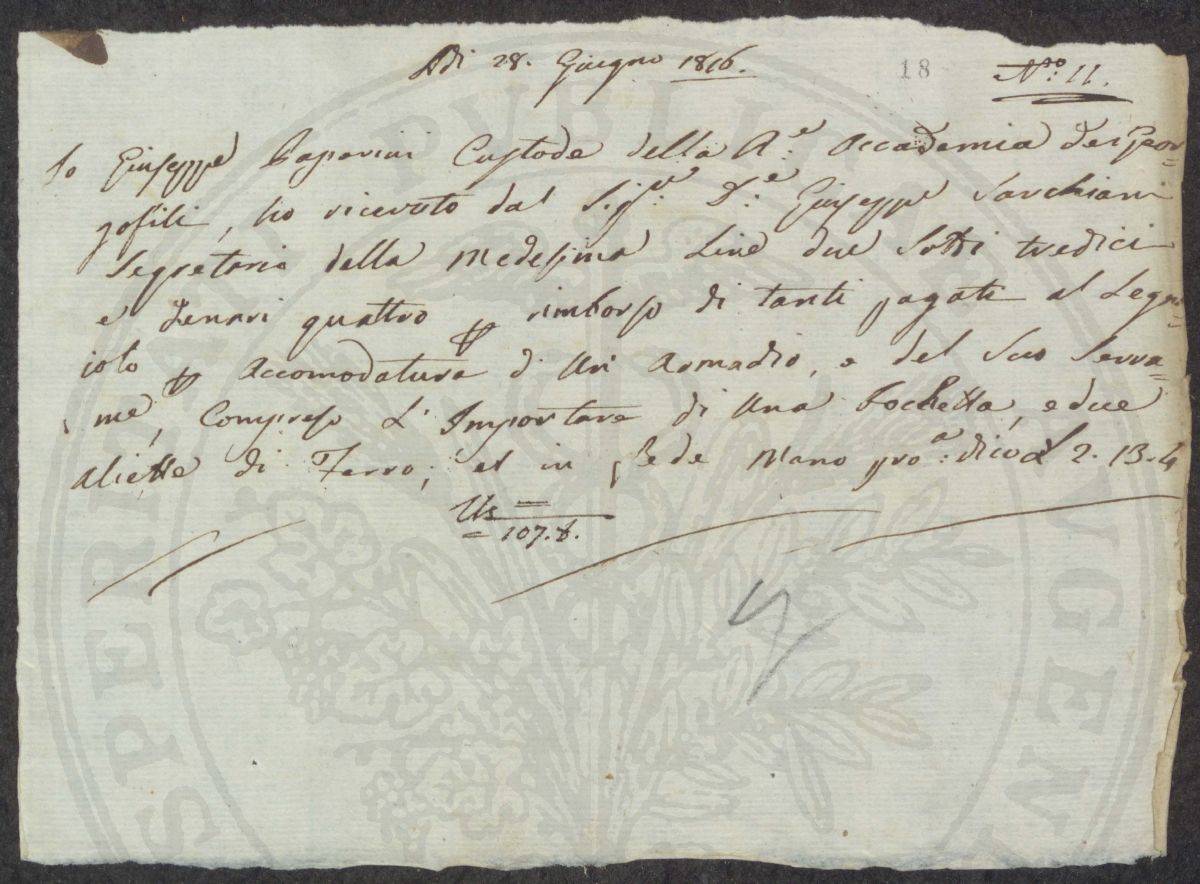 Adi 28. Giugno 1816.
18
N.ro 11.
Io Giuseppe Paperini Custode della R.e Accademia dei Geor=
gofili, ho ricevuto dal Sig.re D.e Giuseppe Sarchiani
Segretario della Medesima Lire due Soldi tredici
e Denari quattro p rimborso di tanti pagati al Legna=
iolo p Accomodatura di Un' Armadio, e del Suo Serra=
me, Compreso L' Importare di Una Bocchetta, e due
Aliette di Ferro; et in fede Mano pro.a dico £ 2. 13. 4
Us =
= 107. 8.